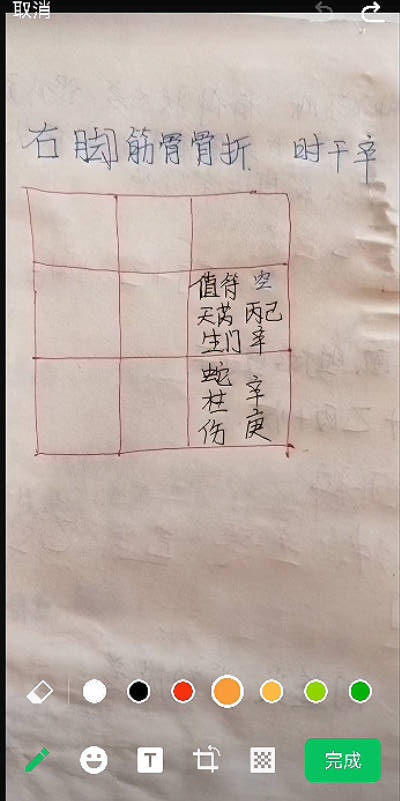 取消
右脚筋骨骨折 时干辛
值符 空
天芮 丙己
生门 辛
蛇 辛
柱
伤 庚
T
完成